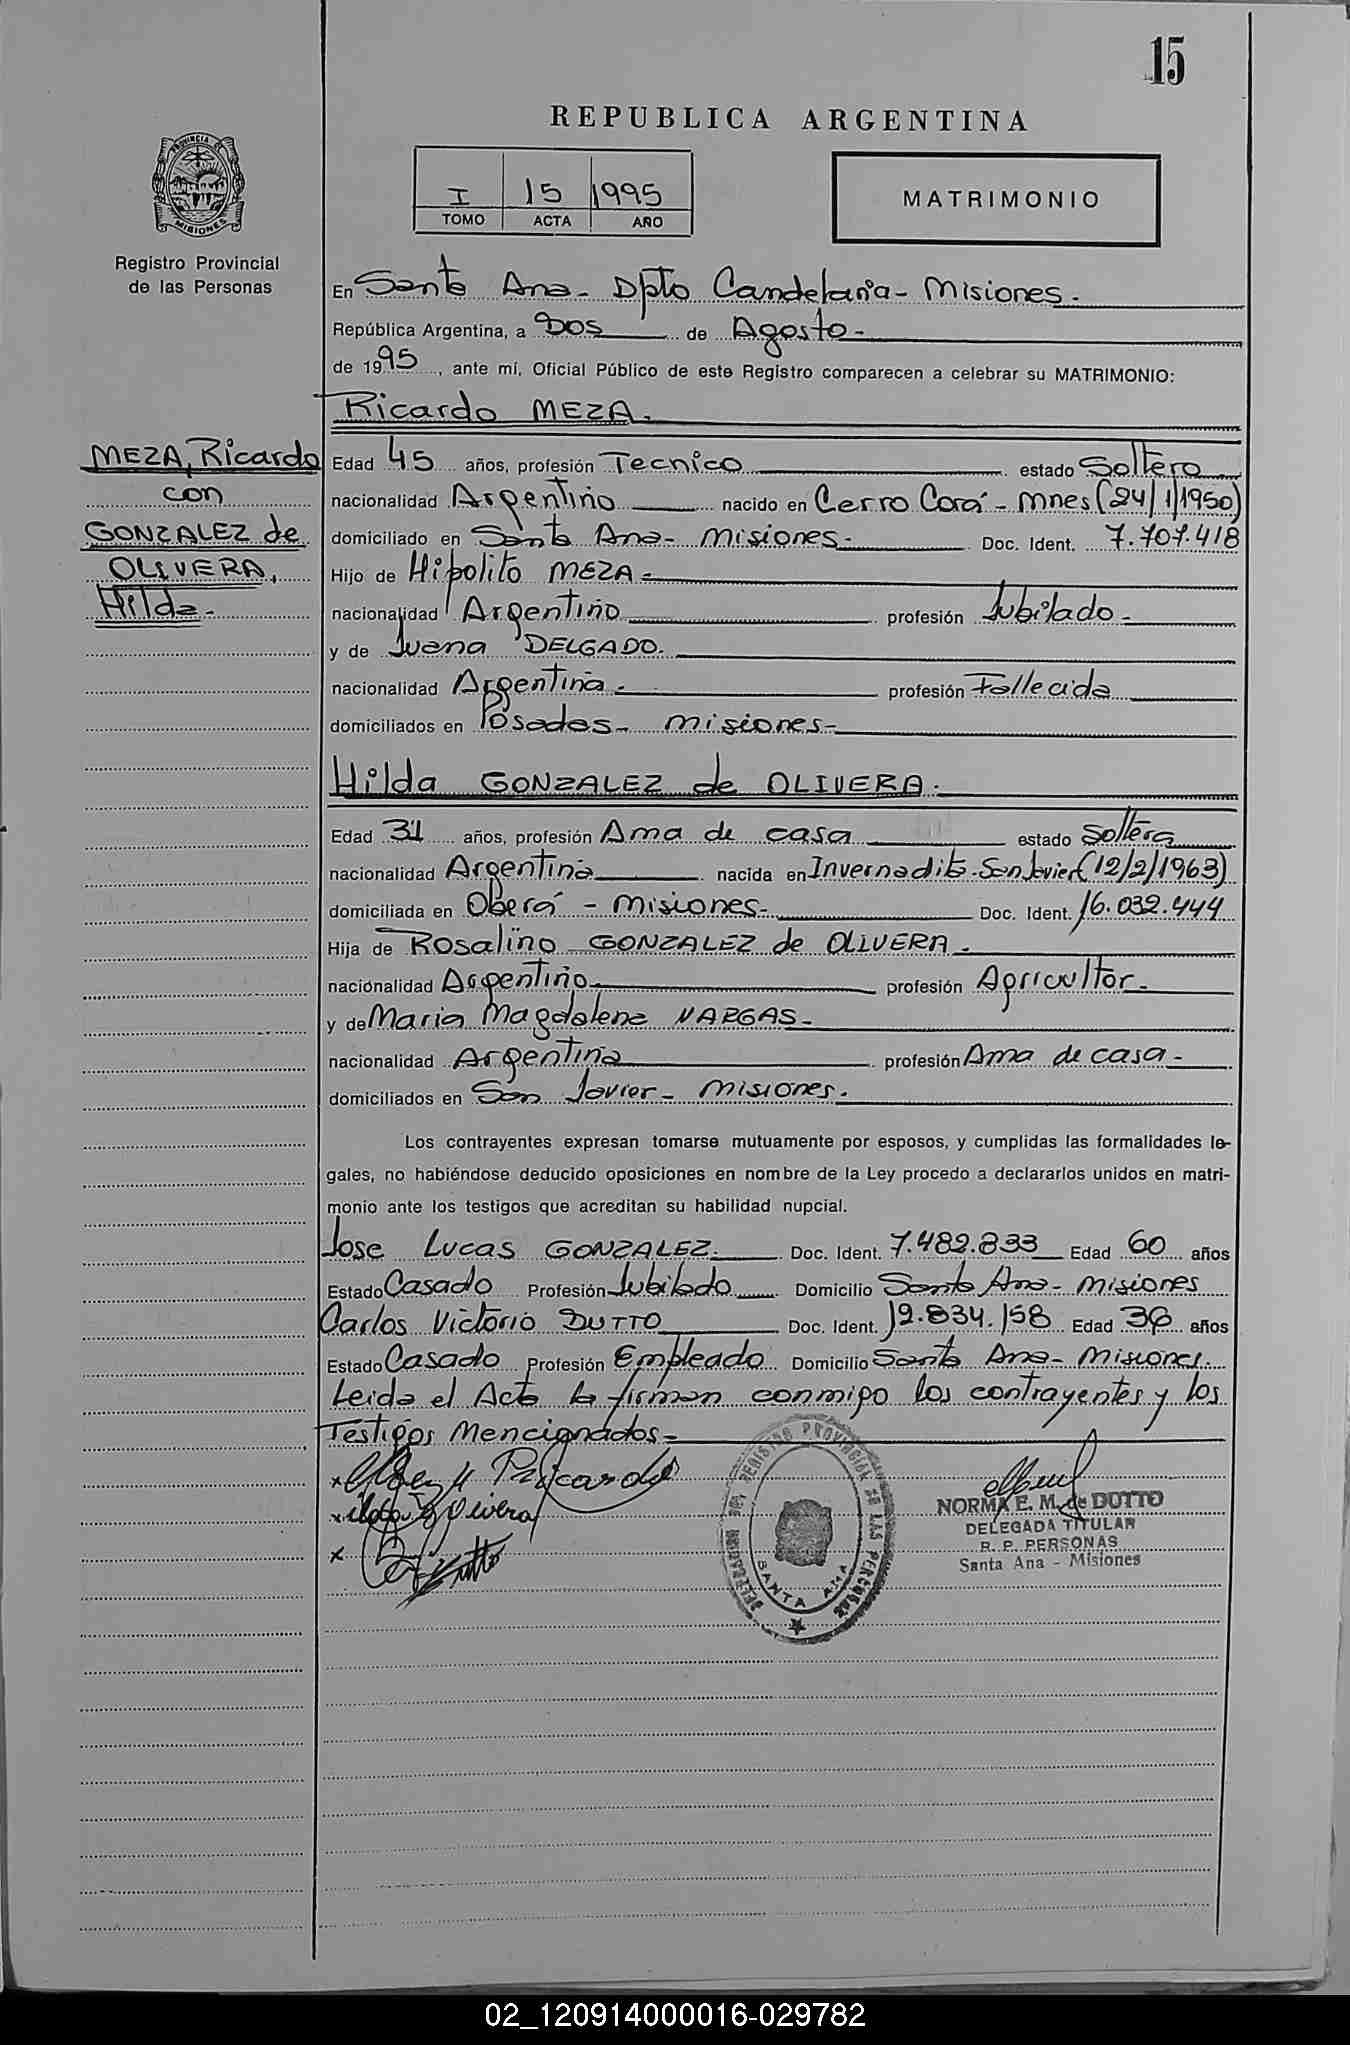 15
REPUBLICA ARGENTINA
PROVINCIA DE
MISIONES
Registro Provincial
de las Personas
I 15 1995
TOMO ACTA AÑO
MATRIMONIO
En Santa Ana - Dpto Candelaria - Misiones -
República Argentina, a Dos de Agosto -
de 1995, ante mí, Oficial Público de este Registro comparecen a celebrar su MATRIMONIO:
Ricardo MEZA -
MEZA, Ricardo
con
GONZALEZ de
OLIVERA,
Hilda -
Edad 45 años, profesión Tecnico estado Soltero
nacionalidad Argentino nacido en Cerro Corá - Mnes (24/1/1950)
domiciliado en Santa Ana - Misiones - Doc. Ident. 7.707.418
Hijo de Hipolito MEZA -
nacionalidad Argentino profesión Jubilado -
y de Juana DELGADO.
nacionalidad Argentina - profesión Fallecida
domiciliados en Posadas - Misiones -
Hilda GONZALEZ de OLIVERA -
Edad 31 años, profesión Ama de casa estado Soltera
nacionalidad Argentina nacida en Invernadita - San Javier (12/2/1963)
domiciliada en Oberá - Misiones - Doc. Ident. 16.032.444
Hija de Rosalino GONZALEZ de OLIVERA -
nacionalidad Argentino profesión Agricultor -
y de Maria Magdalena VARGAS -
nacionalidad Argentina profesión Ama de casa -
domiciliados en San Javier - Misiones -
Los contrayentes expresan tomarse mutuamente por esposos, y cumplidas las formalidades le-
gales, no habiéndose deducido oposiciones en nombre de la Ley procedo a declararlos unidos en matri-
monio ante los testigos que acreditan su habilidad nupcial.
Jose Lucas GONZALEZ Doc. Ident. 7.482.833 Edad 60 años
Estado Casado Profesión Jubilado Domicilio Santa Ana - Misiones
Carlos Victorio DUTTO Doc. Ident. 12.834.158 Edad 36 años
Estado Casado Profesión Empleado Domicilio Santa Ana - Misiones
Leida el Acta la firman conmigo los contrayentes y los
Testigos Mencionados -
Ricardo
Olivera
DELEGACION DEL REGISTRO PROVINCIAL DE LAS PERSONAS
SANTA ANA
NORMA E. M. de DUTTO
DELEGADA TITULAR
R. P. PERSONAS
Santa Ana - Misiones
02_120914000016-029782